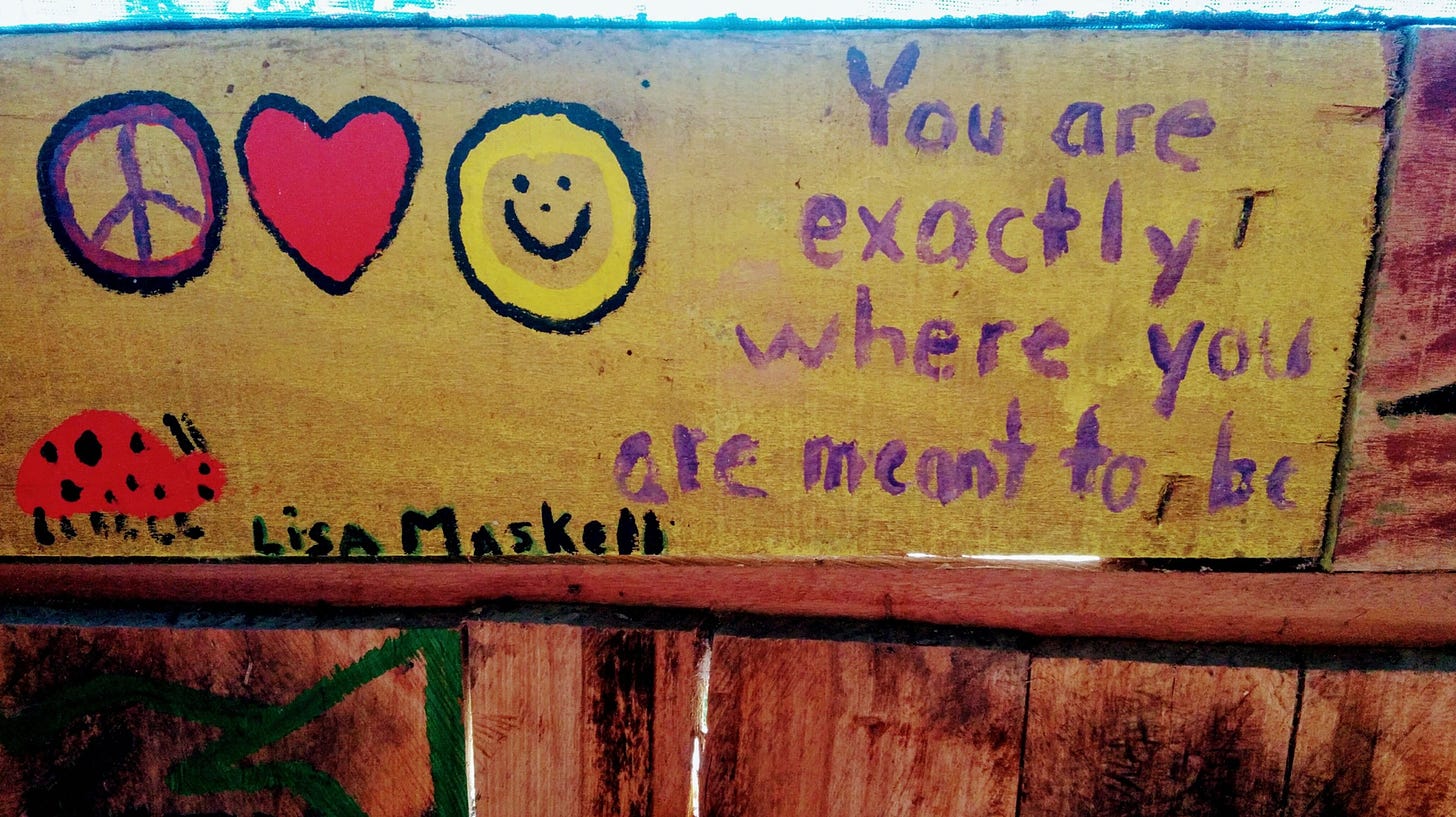 You are
exactly
where you
are meant to be
Lisa Maskell